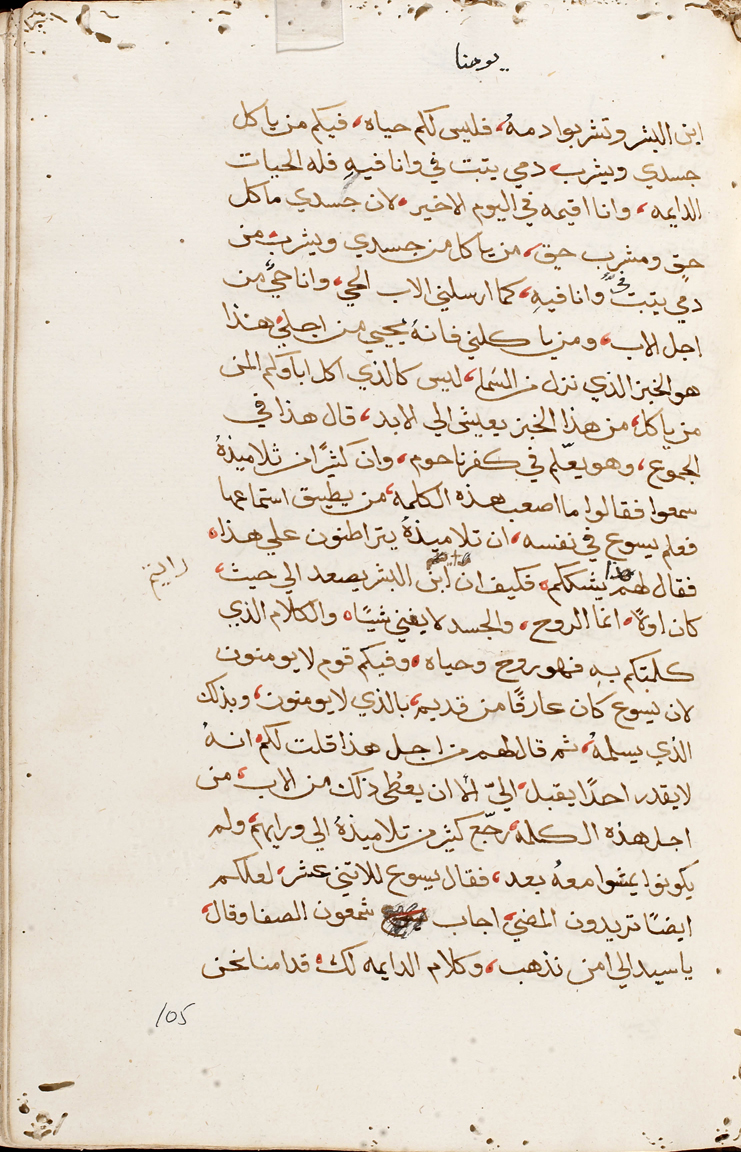 يوحنا
ابن البشر وتشربوا دمهُ، فليس لكم حياه، فيكم من ياكل
جسدي ويشرب دمي يتبت فيَ وانا فيهِ فله الحيات
الدايمه، وانا اقيمه في اليوم الاخير، لان جسدي ماكل
حق ومشرب حق، من ياكل من جسدي ويشرب من
دمي يتبت فيَّ وانا فيهِ، كما ارسلني الاب الحي، وانا حيٌ من
اجل الاب، ومن ياكلني فانهُ يحيي من اجلي، هذا
هو الخبز الذي نزل من السَما، ليس كالذي اكل اباوكم المن
من ياكل، من هذا الخبز يعيش الي الابد، قال هذا في
المجموع، وهو يعّلم في كفرناحوم، وان كثيرًا من تلاميذهُ
سمعوا فقالوا ما اصعب هذه الكلمه، من يطيق استماعها
فعلم يسوع في نفسه، ان تلاميذهُ يتراطنون علي هذا،
فقال لهم هذا يشككم، فكيف ان ابن البشر يصعد الي حيث،
رايتم
كان اولاً، انما الروح، والجسد لا يغني شيًا، والكلام الذي
كلمتكم بهِ فهو روح وحياه، وفيكم قوم لا يومنون
لان يسوع كان عارفًا من قديم، بالذي لا يومنون، وبذلك
الذي يسلمهُ، ثم قال لهم من اجل هذا قلت لكم، انهُ
لا يقدر احدًا يقبل، اليّ الا ان يعُطي ذلك من الاب، من
اجل هذه الكلمه، رجّع كثير من تلاميذهُ الي ورايهم، ولم
يكونوا يمشوا معهُ بعد، فقال يسوع للاتني عشر، لعلكم
ايضًا تريدون المضي، اجاب شمعون الصفا وقال،
يا سيد الي امن نذهب، وكلام الدايمه لك، قد امنا نحن
105